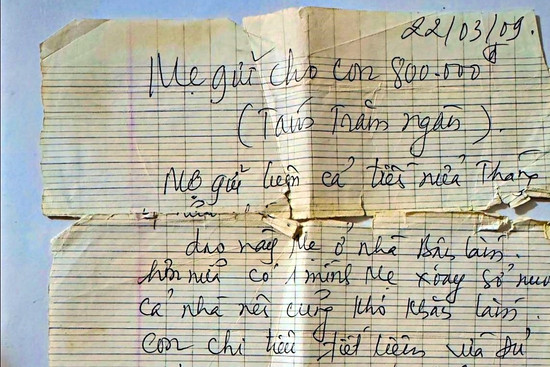 22/03/09.
Mẹ gửi cho con 800.000đ
(Tám Trăm ngàn).
Mẹ gửi luôn cả tiền nửa Tháng
dạo này Mẹ ở nhà Bận lắm.
hơn nữa có 1 mình Mẹ xoay sở nuôi
cả nhà nên cũng khó khăn lắm.
con chi tiêu tiết kiệm vừa đủ